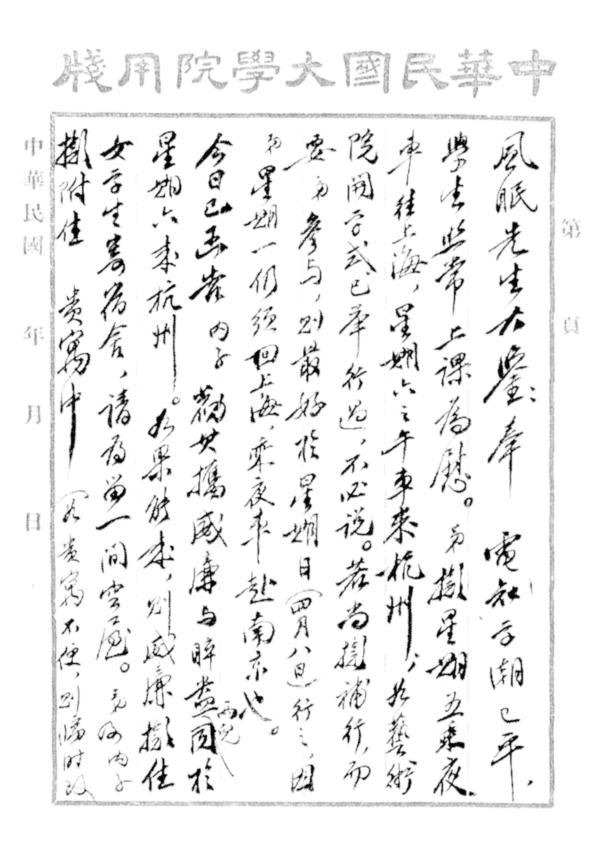 中華民國大學院用牋
第　頁
風眠先生大鑒：奉　電知學潮已平，
學生照常上課為慰。弟擬星期五乘夜
車往上海，星期六之午車來杭州，如藝術
院開學式已舉行過，不必說。若尚擬補行，而
要弟參与，則最好於星期日（四月八日）行之，因
弟星期一仍須回上海，乘夜車赴南京也。
今日已函告內子勸其攜威廉与睟盎兩兒同於
星期六來杭州。如果能來，則威廉擬住
女學生寄宿舍，請為留一間空屋。弟與內子
擬附住　貴寓中（若貴寓不便，則臨時改
中華民國　年　月　日